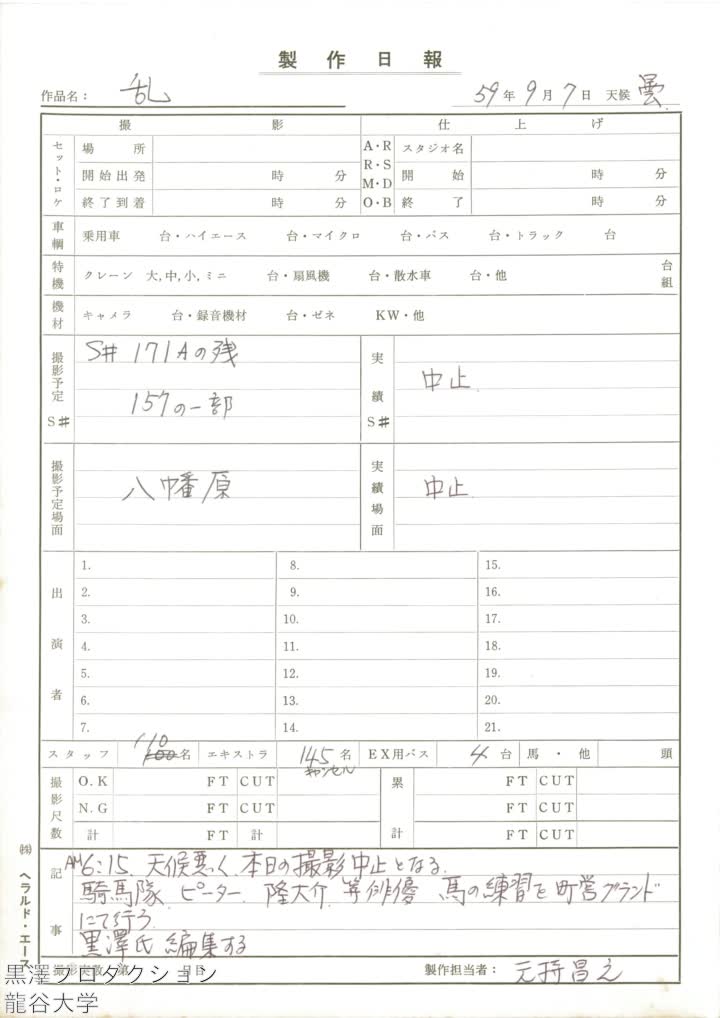 製作日報
作品名： 乱 59年9月7日 天候 曇
撮影 仕上げ
セット・ロケ 場所 A・R スタジオ名
開始出発 時 分 R・S 開始 時 分
M・D
終了到着 時 分 O・B 終了 時 分
車輌 乗用車 台・ハイエース 台・マイクロ 台・バス 台・トラック 台
特機 クレーン 大,中,小,ミニ 台・扇風機 台・散水車 台・他 台組
機材 キャメラ 台・録音機材 台・ゼネ KW・他
撮影予定S# S# 171Aの残 実績S# 中止
157の一部
撮影予定場面 八幡原 実績場面 中止
出演者
1. 8. 15.
2. 9. 16.
3. 10. 17.
4. 11. 18.
5. 12. 19.
6. 13. 20.
7. 14. 21.
スタッフ 110 名 エキストラ 145名 EX用バス 4台 馬・他 頭
キャンセル
撮影尺数 O.K FT CUT 累計 FT CUT
N.G FT CUT FT CUT
計 FT 計 FT CUT
記事
AM6:15. 天候悪く、本日の撮影中止となる.
騎馬隊. ピーター. 隆大介. 等俳優 馬の練習を町営グランド
にて行う.
黒澤氏 編集する
撮影実数 第 日 製作担当者： 元持昌之
㈱ ヘラルド・エース
黒澤プロダクション
龍谷大学